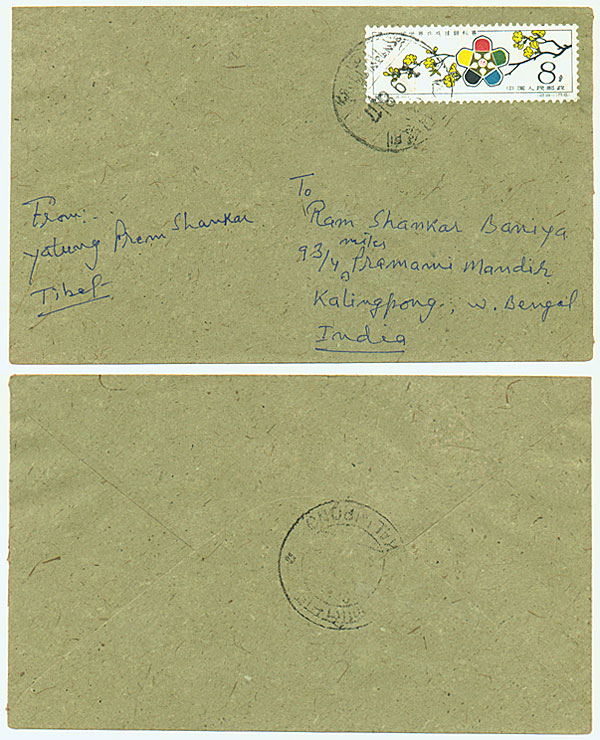 8分
中国人民邮政
From:
Yatung Prem Shankar
Tibet
To
Ram Shankar Baniya
miles
93/4 Pramami Mandir
Kalingpong, W. Bengal
India
KALIMPONG